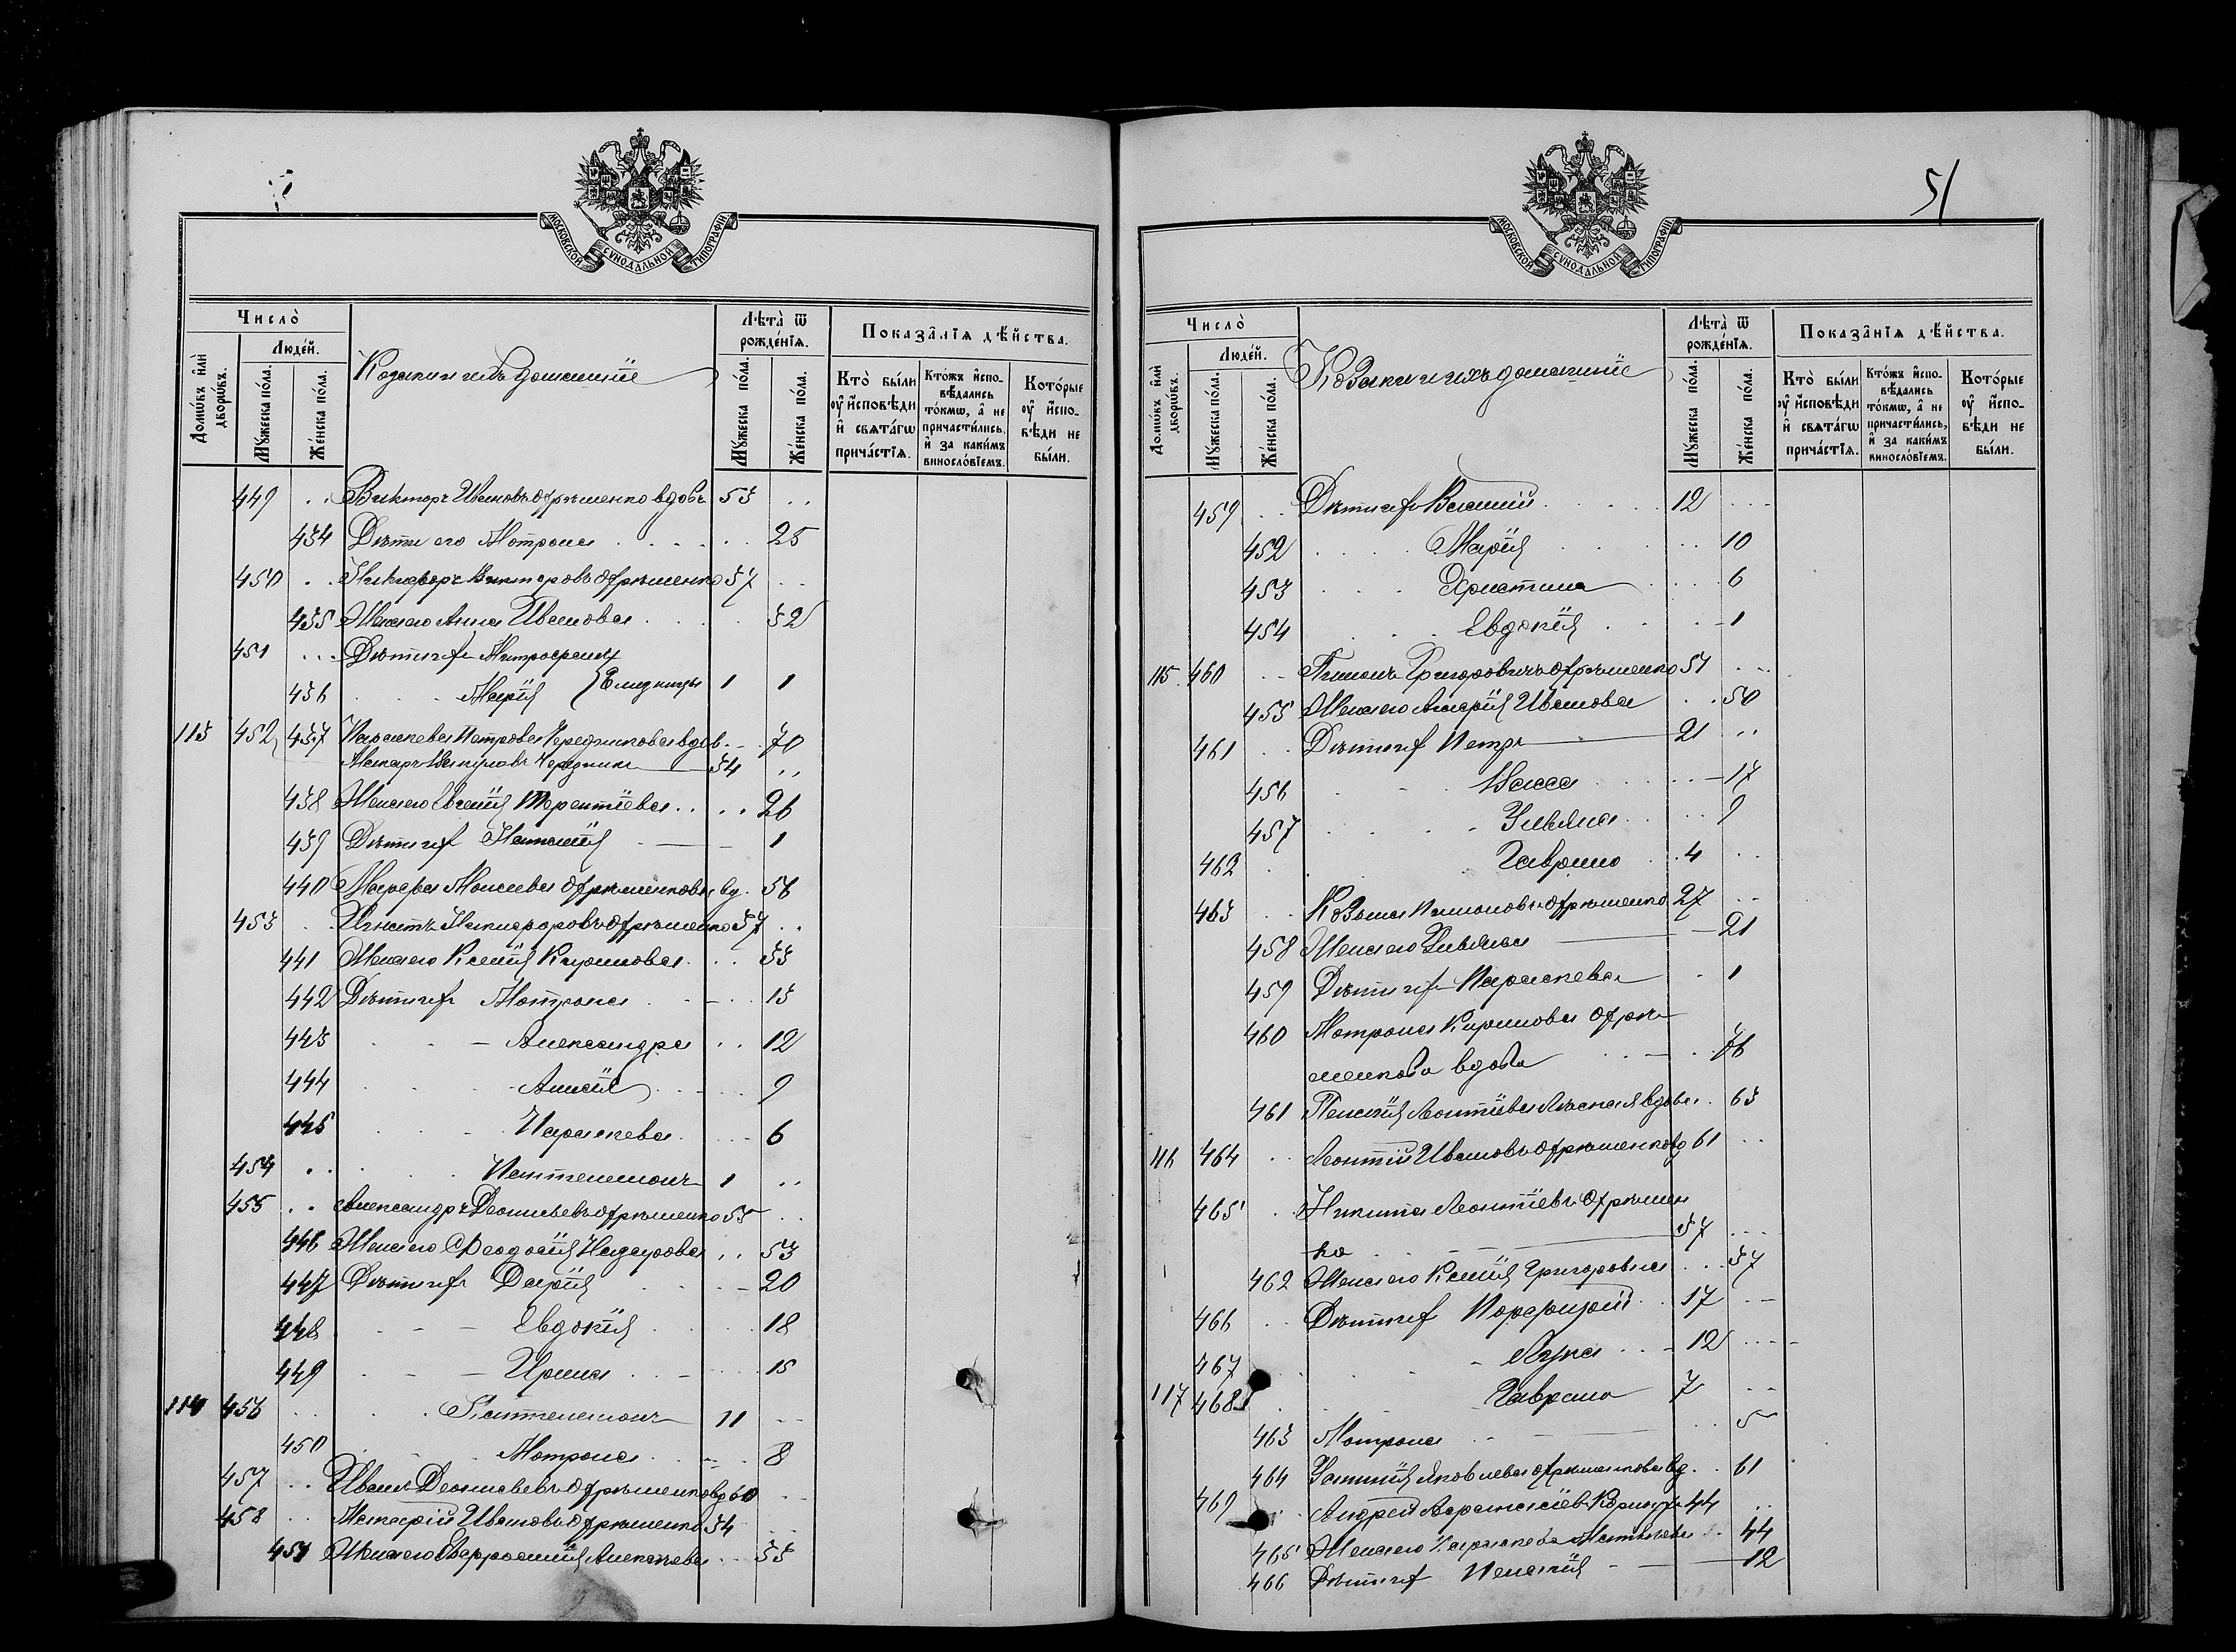 МОСКОВСКОЙ СѴНОДАЛЬНОЙ ТИПОГРАФІИ
Число̀
Люде́й.
Домѡ́въ и҆лѝ дворѡ́въ.
Мꙋ́жеска по́ла.
Же́нска по́ла.
Козаки и ихъ домашніе
Лѣта̀ ѿ рожде́нїѧ.
Мꙋ́жеска по́ла.
Же́нска по́ла.
Показа̑нїѧ дѣ́йства.
Кто̀ бы́ли оу҆ и҆́сповѣди и҆ свѧта́гѡ прича́стїѧ.
Кто́жъ и҆спо-вѣ́дались то́кмѡ, а҆ не причасти́лись, и҆ за каки́мъ виносло́вїемъ.
Кото́рые оу҆ и҆́спо-вѣди не бы́ли.
449 . . Викторъ Ивановъ Офрѣменко вдовъ 53 . .
434 Дѣти его Мотрона . . . 25
450 . . Никифоръ Викторовъ Офрѣменко 37 . .
435 Жена его Анна Иванова . . . 32
451 . . Дѣти ихъ Митрофанъ
436 Марія } близнцы 1 1
113 452 437 Параскева Петрова Чередникова вдов. . . 70
Макаръ Чередникъ 34 . .
438 Жена его Евгенія Терентіева . . . . 26
439 Дѣти ихъ Наталія 1
440 Марфа Моисеева Офрѣменкова вд. 56
453 . Игнатъ Никифоровъ Офрѣменко 37 . .
441 Жена его Ксенія Кирилова . . . 33
442 Дѣти ихъ Мотрона . . . 13
443 Александра . . 12
444 Анисія . . . 9
445 Параскева . . . 6
454 . . Пантелеимонъ 1 . .
455 . . Александръ Деонисьевъ Офрѣменко 55 . .
446 Жена его Феодосія Назарова . . 53
447 Дѣти ихъ Дарія 20
448 Евдокія . . 18
449 Ирина . . . 15
114 456 . . Пантелеимонъ 11 . .
450 Мотрона . . . 8
457 . . Иванъ Деонисьевъ Офрѣменко вд 60 . .
458 . . Макарій Ивановъ Офрѣменко 34 . .
451 Жена его Евфросинія Алексѣева . . 33
51
МОСКОВСКОЙ СѴНОДАЛЬНОЙ ТИПОГРАФІИ
Число̀
Люде́й.
Домѡ́въ и҆лѝ дворѡ́въ.
Мꙋ́жеска по́ла.
Же́нска по́ла.
Козаки и ихъ домашніе
Лѣта̀ ѿ рожде́нїѧ.
Мꙋ́жеска по́ла.
Же́нска по́ла.
Показа̑нїѧ дѣ́йства.
Кто̀ бы́ли оу҆ и҆́сповѣди и҆ свѧта́гѡ прича́стїѧ.
Кто́жъ и҆спо-вѣ́дались то́кмѡ, а҆ не причасти́лись, и҆ за каки́мъ виносло́вїемъ.
Кото́рые оу҆ и҆́спо-вѣди не бы́ли.
459 . . Дѣти ихъ Василій . . . 12 . . .
452 Марія . . . 10
453 Христина . . . 6
454 Евдокія . . . 1
115 460 . . Пимонъ Григоровичъ Офрѣменко 51 . .
455 Жена его Марія Иванова . . 50
461 . . Дѣти ихъ Петръ 21 . .
456 Васса . . . 17
457 Уліяна . . . 9
462 Гаврило . . 4 . .
463 . . Козьма Пимоновъ Офрѣменко 27 . .
458 Жена его Уліяна 21
459 Дѣти ихъ Параскева . 1
460 Мотрона Кирилова Офрѣ-
менкова вдова . . . 76
461 Пелагія Леонтіева вдова . 63
116 464 . . Леонтій Ивановъ Офрѣменко вд 61 . .
465 . Никита Леонтіевъ Офрѣмен
ко 37 . . .
462 Жена его Ксенія Григоровна . . . 37
466 . . Дѣти ихъ Порфирій . 17 . .
467 Лука . . . 12 . . .
117 468 Гаврило 7 . .
463 Мотрона . . . 5
464 Яковлева Офрѣменкова вд. . . 61
469 . . Андрей Афанасіев 44 . .
465 Жена его Параскева Матвѣева . . 44
466 Дѣти ихъ Пелагія 12